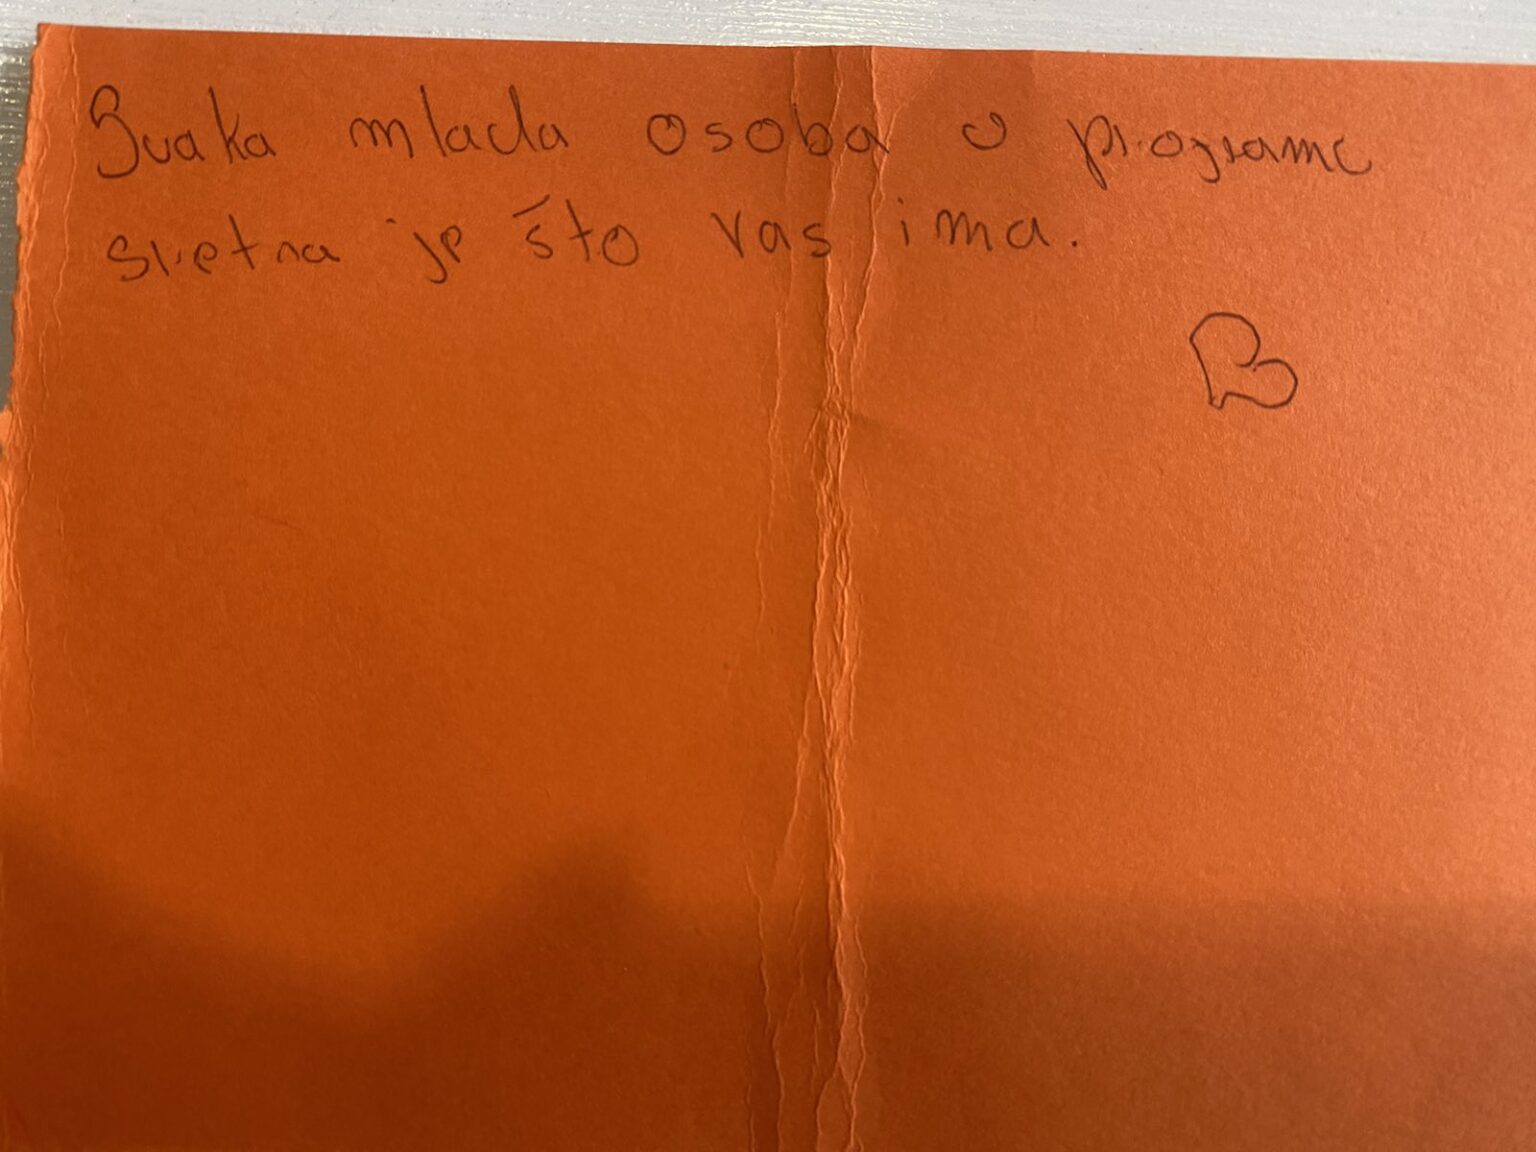 Svaka mlada osoba u programu
sretna je što vas ima.